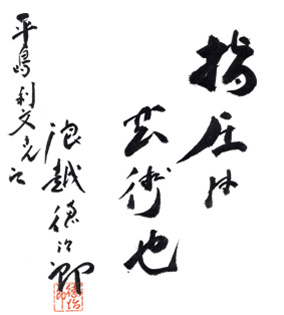 指圧は
芸術也
浪越徳治郎
平島利文君江